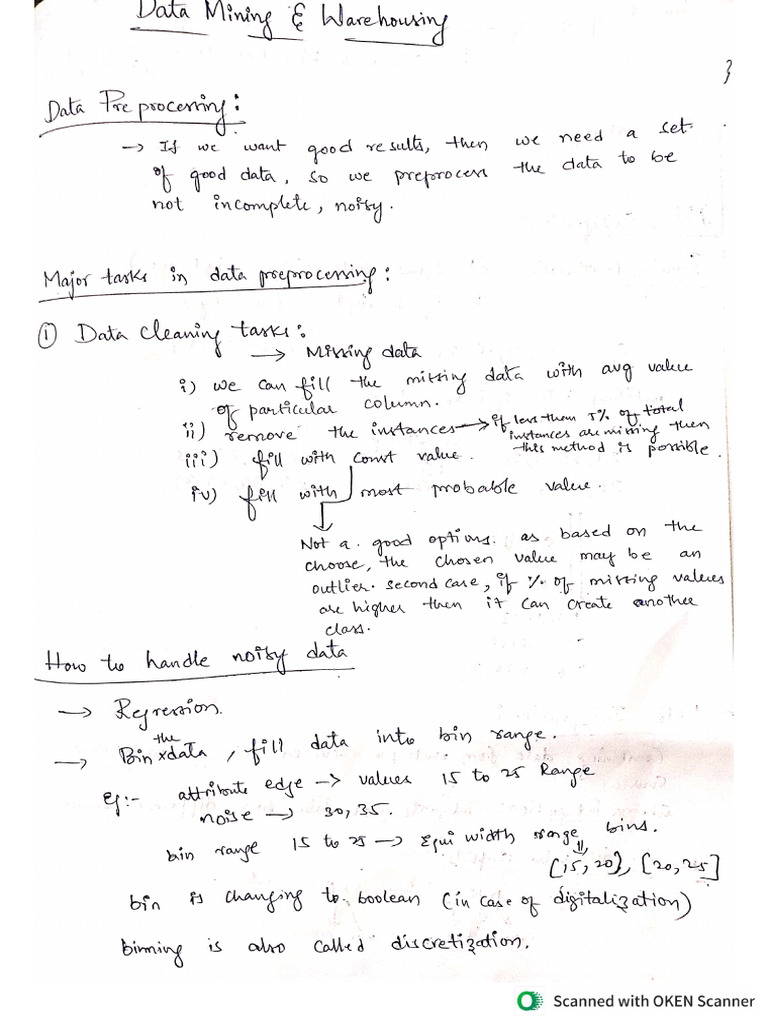 Data Mining & Warehousing
3
Data Preprocessing:
→ If we want good results, then we need a set
of good data, so we preprocess the data to be
not incomplete, noisy.
Major tasks in data preprocessing:
① Data Cleaning tasks:
→ Missing data
i) we can fill the missing data with avg value
of particular column.
ii) remove the instances → if less them 5% of total
instances are missing then
this method is possible.
iii) fill with const value.
iv) fill with most probable value.
Not a good options. as based on the
choose, the chosen value may be an
outlier. second case, if % of missing values
are higher then it can create another
class.
How to handle noisy data
→ Regression.
→ Bin the data, fill data into bin range.
Eg:- attribute edge → values 15 to 25 Range
noise → 30, 35.
bin range 15 to 25 → Equi width range bins.
[15, 20), [20, 25]
bin is changing to boolean (in case of digitalization)
binning is also called discretization.
Scanned with OKEN Scanner